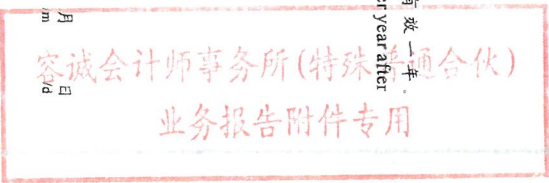 容诚会计师事务所(特殊普通合伙)
业务报告附件专用
效一年。
year after
月
日
/d